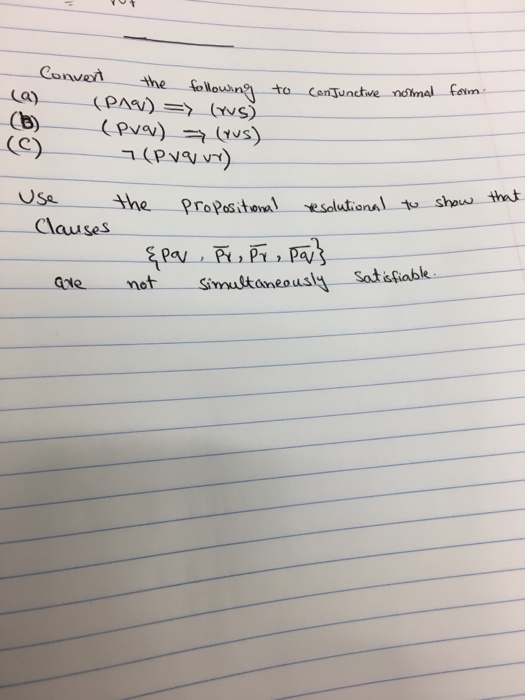 Convert the following to Conjunctive normal form.
(a) (P∧q) ⇒ (r∨s)
(b) (p∨q) ⇒ (r∨s)
(c) ¬(p∨q∨r)
Use the propositional resolutional to show that
Clauses
{pq, p̅r, p̅r̅, pq̅}
are not simultaneously satisfiable.